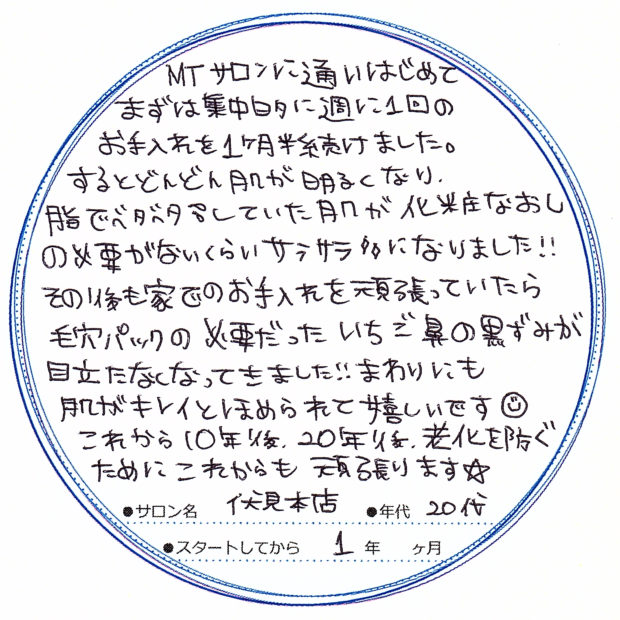 MTサロンに通いはじめて
まずは集中的に週に1回の
お手入れを1ヶ月半続けました。
するとどんどん肌が明るくなり、
脂でベタベタしていた肌が化粧なおし
の必要がないくらいサラサラ肌になりました!!
その後も家でのお手入れを頑張っていたら
毛穴パックの必要だったいちご鼻の黒ずみが
目立たなくなってきました!! まわりにも
肌がキレイとほめられて嬉しいです☺
これから10年後、20年後、老化を防ぐ
ためにこれからも頑張ります☆
●サロン名 伏見本店 ●年代 20代
●スタートしてから 1 年 ヶ月